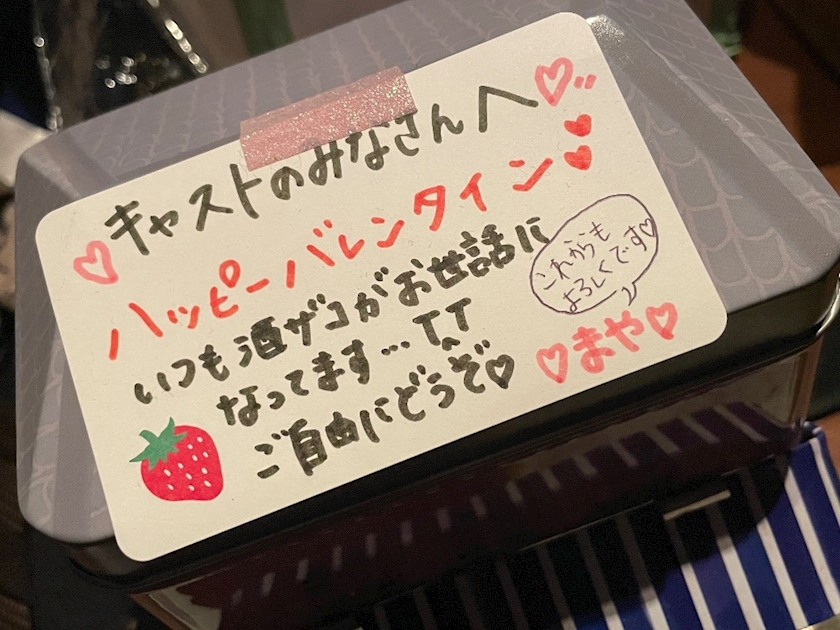 キャストのみなさんへ♡
ハッピーバレンタイン♥♥
いつも酒ザコがお世話に
なってます…T^T
ご自由にどうぞ♡
これからも
よろしくです♡
♡まや♡